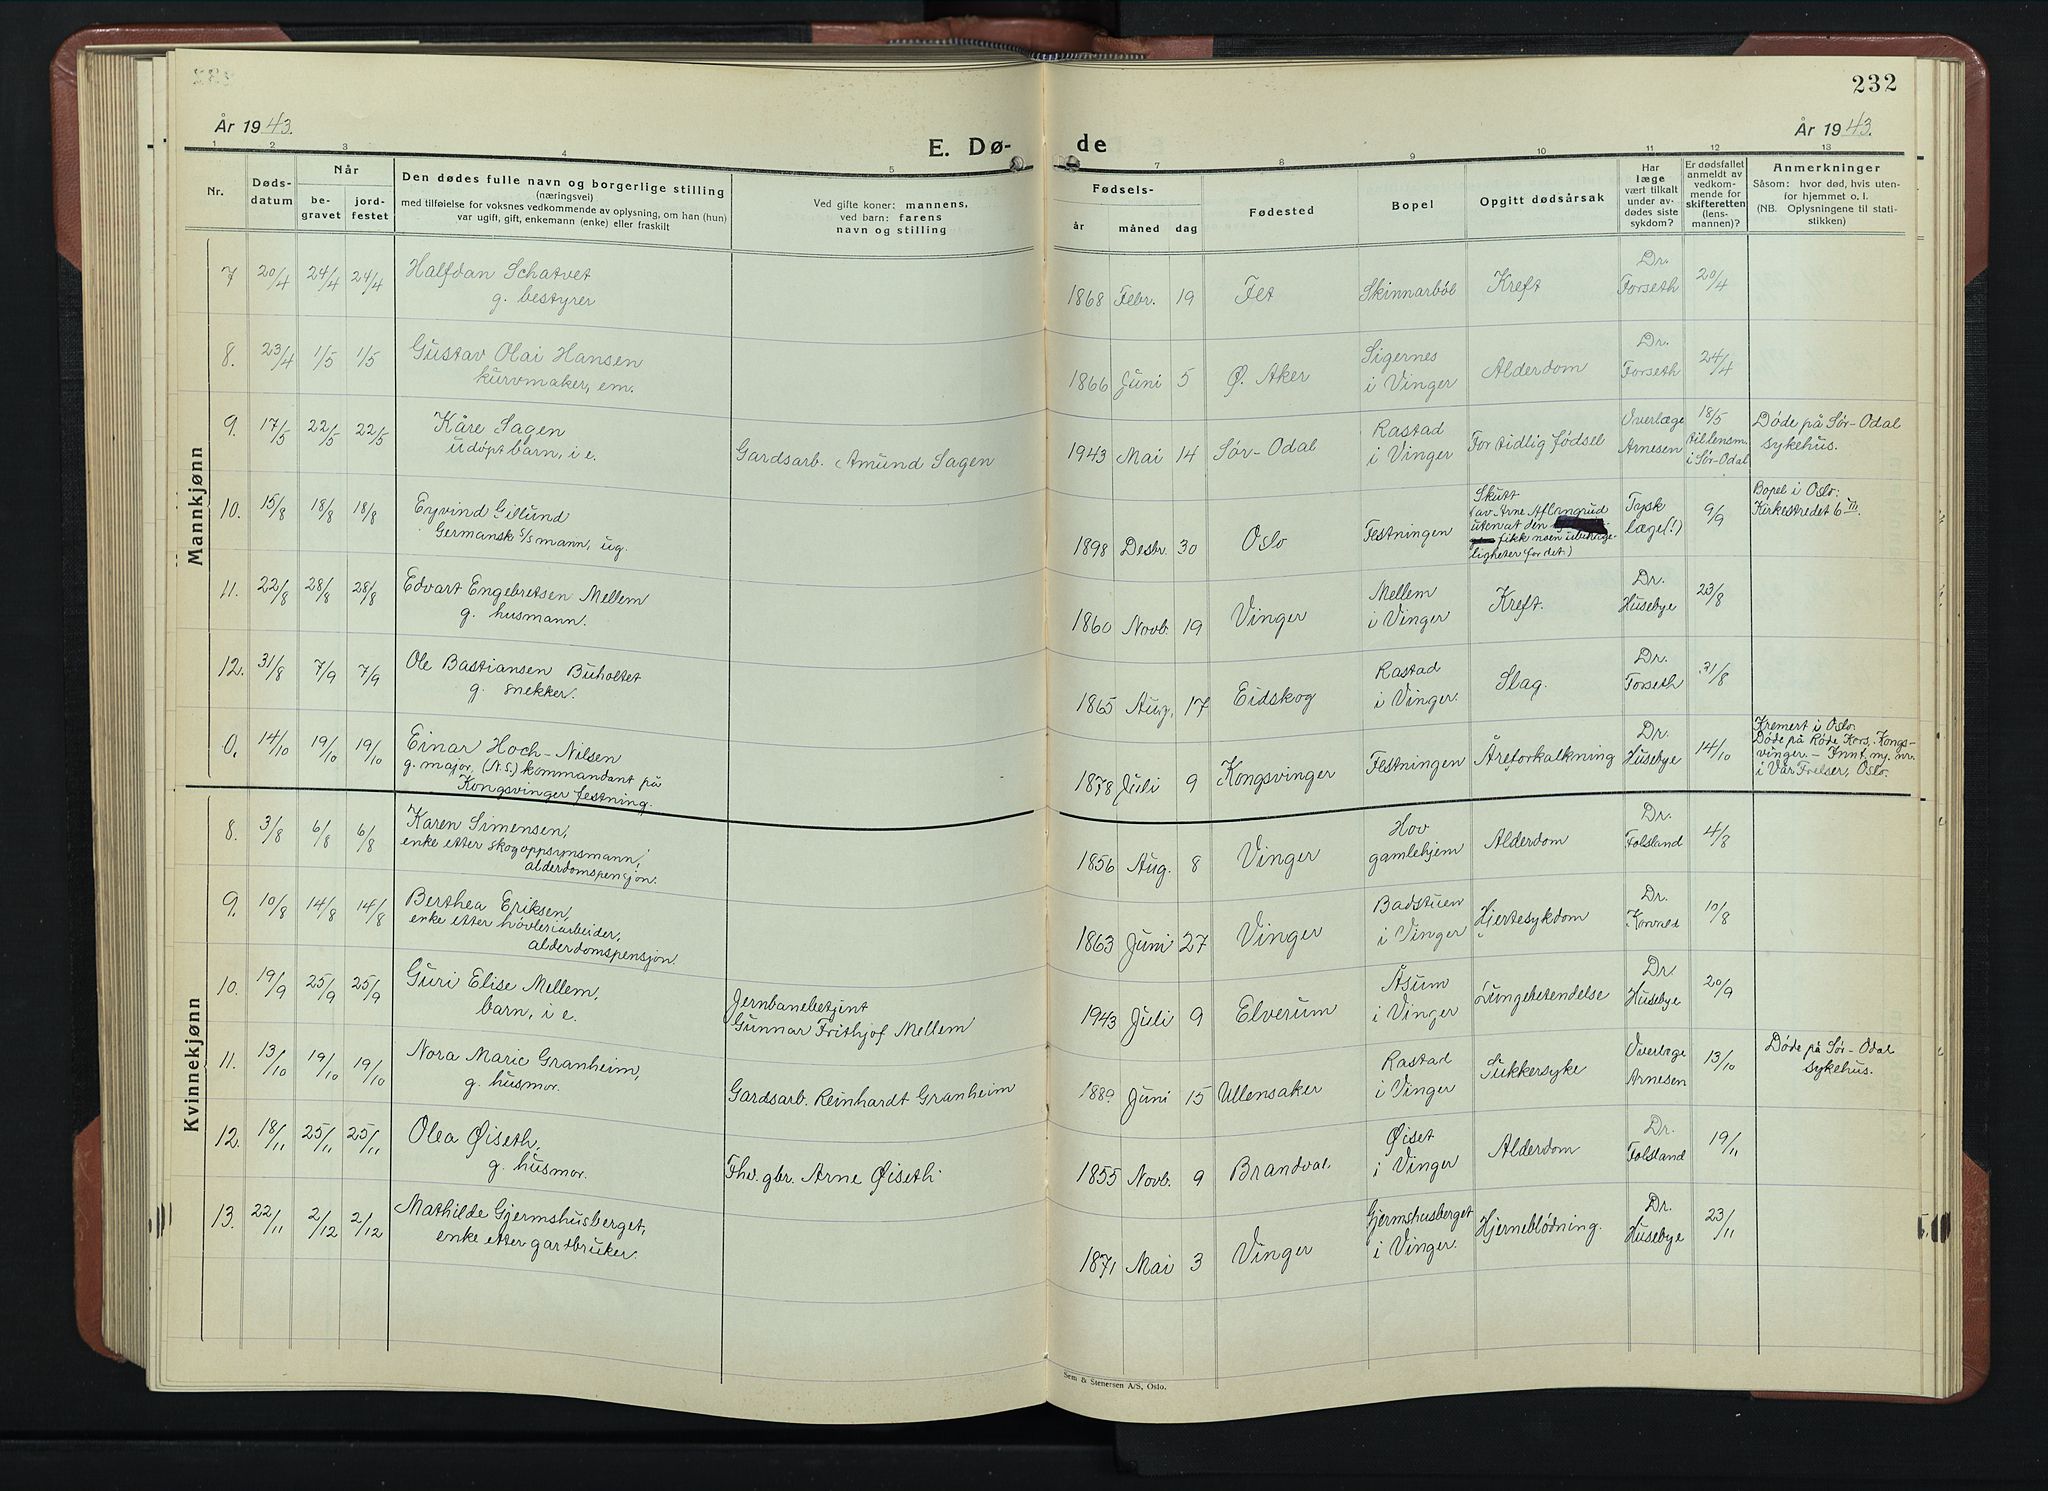 232
År 1943.
E. Dø-
de
År 1943.
1 2 3 4 5 7 8 9 10 11 12 13
Nr.
Døds-
datum
Når
be-
gravet
jord-
festet
Den dødes fulle navn og borgerlige stilling
(næringsvei)
med tilføielse for voksnes vedkommende av oplysning, om han (hun)
var ugift, gift, enkemann (enke) eller fraskilt
Ved gifte koner: mannens,
ved barn: farens
navn og stilling
Fødsels-
år måned dag
Fødested
Bopel
Opgitt dødsårsak
Har
læge
vært tilkalt
under av-
dødes siste
sykdom?
Er dødsfallet
anmeldt av
vedkom-
mende for
skifteretten
(lens-
mannen)?
Anmerkninger
Såsom: hvor død, hvis uten-
for hjemmet o. l.
(NB. Oplysningene til stati-
stikken)
Mannkjønn
7 20/4 24/4 24/4 Halfdan Schatvet
g. bestyrer
1868 Febr. 19 Fet Skinnarbøl Kreft Dr.
Forseth 20/4
8. 23/4 1/5 1/5 Gustav Olai Hansen
kurvmaker, em.
1866 Juni 5 Ø. Aker Sigernes
i Vinger Alderdom Dr.
Forseth 24/4
9. 17/5 22/5 22/5 Kåre Sagen
udøpt barn, i e. Gardsarb. Amund Sagen
1943 Mai 14 Sør-Odal Rastad
i Vinger For tidlig fødsel Overlæge
Arnesen 18/5
til lensm.
i Sør-Odal Døde på Sør-Odal
sykehus.
10. 15/8 18/8 18/8 Eyvind Gillund
Germansk s/s mann, ug.
1898 Desbr. 30 Oslo Festningen Skutt
(av Arne Aflangrud
uten at den
fikk noen ubehage-
ligheter for det.) Tysk
læge(!) 9/9 Bopel i Oslo:
Kirkestredet 6 III.
11. 22/8 28/8 28/8 Edvart Engebretsen Mellem
g. husmann.
1860 Novb. 19 Vinger Mellem
i Vinger Kreft. Dr.
Husebye 23/8
12. 31/8 7/9 7/9 Ole Bastiansen Buholtet
g. snekker.
1865 Aug. 17 Eidskog Rastad
i Vinger. Slag. Dr.
Forseth 31/8
0. 14/10 19/10 19/10 Einar Hoch-Nilsen
g. major, (N.S.) kommandant på
Kongsvinger festning.
1878 Juli 9 Kongsvinger Festningen Åreforkalkning Dr.
Husebye 14/10 Kremert i Oslo
Døde på Røde Kors, Kongs-
vinger. – Innt. ny. nr.
i Vår Frelser, Oslo.
Kvinnekjønn
8. 3/8 6/8 6/8 Karen Simensen,
enke etter skogoppsynsmann,
alderdomspensjon.
1856 Aug. 8 Vinger Hov
gamlehjem Alderdom Dr.
Folsland 4/8
9. 10/8 14/8 14/8 Berthea Eriksen,
enke etter høvleriarbeider,
alderdomspensjon.
1863 Juni 27 Vinger Badstuen
i Vinger Hjertesykdom Dr.
Korvald 10/8
10. 19/9 25/9 25/9 Guri Elise Mellem,
barn, i e. Jernbanebetjent
Gunnar Frithjof Mellem
1943 Juli 9 Elverum Åsum
i Vinger Lungebetendelse Dr.
Husebye 20/9
11. 13/10 19/10 19/10 Nora Marie Granheim,
g. husmor. Gardsarb. Reinhardt Granheim
1889 Juni 15 Ullensaker Rastad
i Vinger Sukkersyke Overlæge
Arnesen 13/10 Døde på Sør-Odal
sykehus.
12. 18/11 25/11 25/11 Olea Øiseth,
g. husmor. Fhv. gbr. Arne Øiseth
1855 Novb. 9 Brandval Øiset
i Vinger Alderdom Dr.
Folsland 19/11
13. 22/11 2/12 2/12 Mathilde Gjermshusberget,
enke etter gartbruker.
1871 Mai 3 Vinger Gjermshusberget
i Vinger. Hjerneblødning. Dr.
Husebye 23/11
Sem & Stenersen A/S, Oslo.